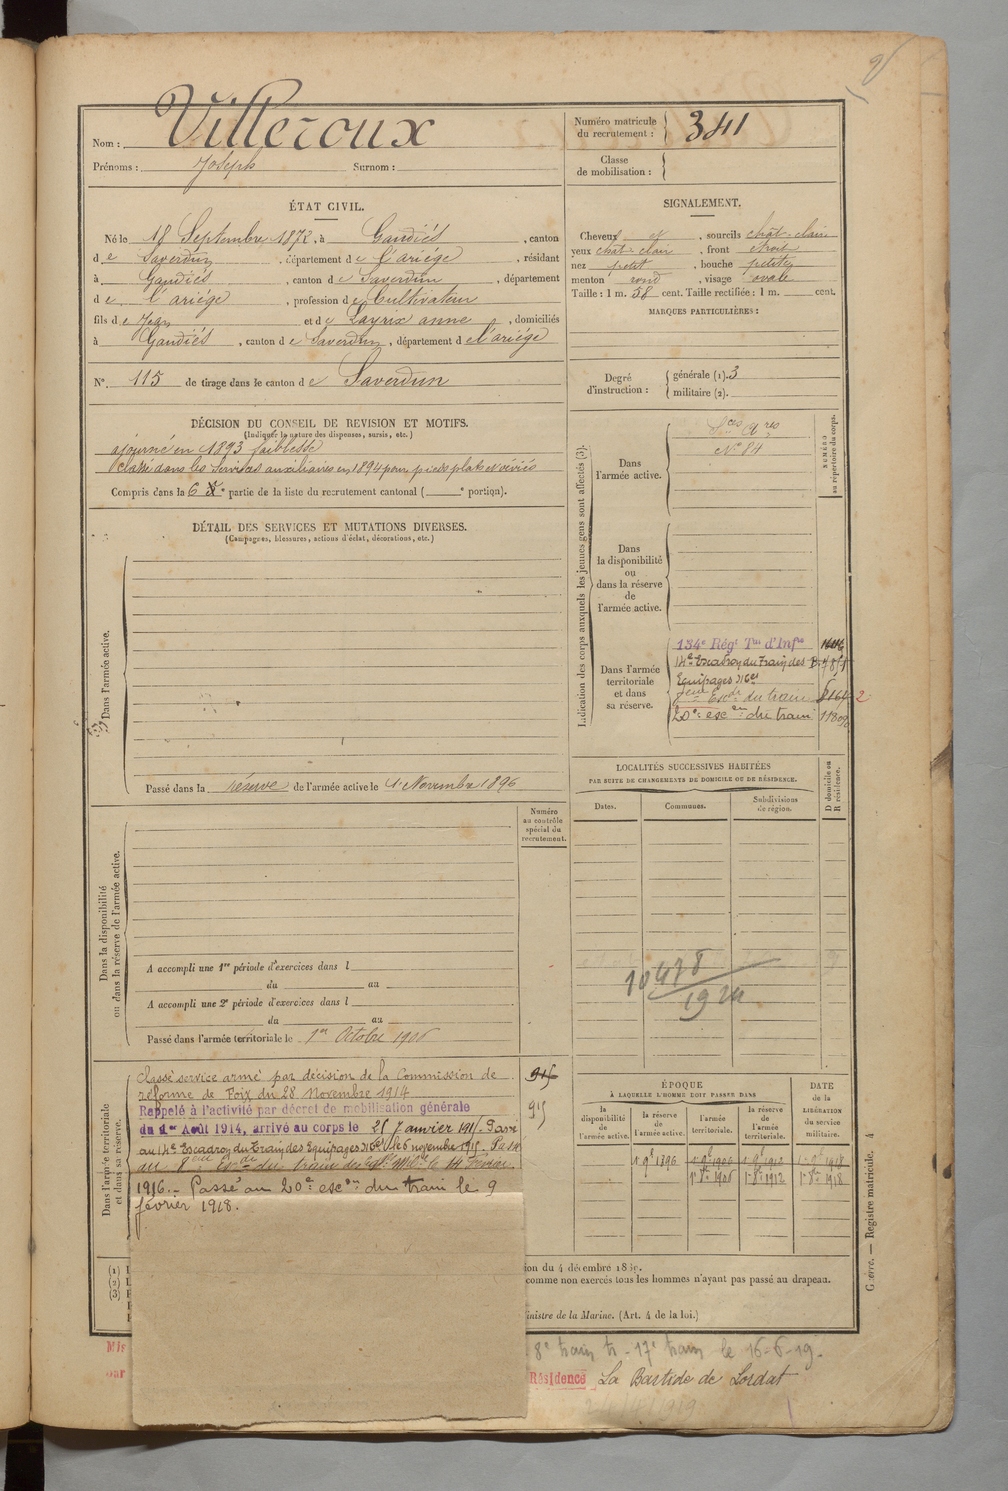 Nom : Villeroux
Prénoms : Joseph Surnom :
Numéro matricule du recrutement : 341
Classe de mobilisation :
ÉTAT CIVIL.
Né le 18 Septembre 1872, à Gaudiés, canton
de Saverdun, département de l'ariége, résidant
à Gaudiés, canton de Saverdun, département
de l'ariége, profession de Cultivateur
fils de Jean et de Layrix anne, domiciliés
à Gaudiés, canton de Saverdun, département de l'ariége
N° 115 de tirage dans le canton de Saverdun
SIGNALEMENT.
Cheveux et, sourcils chât-clair
yeux chat-clair, front étroit
nez petit, bouche petite
menton rond, visage ovale
Taille : 1 m. 58 cent. Taille rectifiée : 1 m. cent.
MARQUES PARTICULIÈRES :
Degré d'instruction : générale (1). 3
militaire (2).
DÉCISION DU CONSEIL DE REVISION ET MOTIFS.
(Indiquer la nature des dispenses, sursis, etc.)
ajourné en 1893 faiblesse
Classé dans les Services auxiliaires en 1894 pour pieds plats et déviés
Compris dans la 6e partie de la liste du recrutement cantonal ( e portion).
DÉTAIL DES SERVICES ET MUTATIONS DIVERSES.
(Campagnes, blessures, actions d'éclat, décorations, etc.)
Dans l'armée active.
Passé dans la réserve de l'armée active le 1er Novembre 1896
Indication des corps auxquels les jeunes gens sont affectés (3).
NUMÉRO au répertoire du corps.
Dans l'armée active.
Sces Ares
N° 84
Dans la disponibilité ou dans la réserve de l'armée active.
Dans l'armée territoriale et dans sa réserve.
134e Régt Tal d'Infie
14e Escadron du Train des
Equipages Mres
Esc du train 2
20e escon du train
LOCALITÉS SUCCESSIVES HABITÉES
PAR SUITE DE CHANGEMENTS DE DOMICILE OU DE RÉSIDENCE.
Dates. Communes. Subdivisions de région. D domicile ou R résidence.
10478
1924
Dans la disponibilité ou dans la réserve de l'armée active.
Numéro au contrôle spécial du recrutement.
A accompli une 1re période d'exercices dans l
du au
A accompli une 2e période d'exercices dans l
du au
Passé dans l'armée territoriale le 1er Octobre 1906
Dans l'armée territoriale et dans sa réserve.
Classé service armé par décision de la Commission de
réforme de Foix du 28 Novembre 1914
Rappelé à l'activité par décret de mobilisation générale
du 1er Août 1914, arrivé au corps le 25 Janvier 1915. Passé
au 14e Escadron du Train des Equipages Mres le 6 novembre 1915. Passé
au 8e Escon du train des eq. Mil. le 14 Février
1916. - Passé au 20e escon du train le 9
février 1918.
915
915
ÉPOQUE
À LAQUELLE L'HOMME DOIT PASSER DANS
la disponibilité de l'armée active. la réserve de l'armée active. l'armée territoriale. la réserve de l'armée territoriale.
DATE de la LIBÉRATION du service militaire.
1 9e 1896 1 9e 1906 1 9e 1912 1 9e 1918
1 8e 1906 1 8e 1912 1 8e 1918
(1)
(2)
(3)
ion du 4 décembre 1889.
comme non exercés tous les hommes n'ayant pas passé au drapeau.
inistre de la Marine. (Art. 4 de la loi.)
Guerre. — Registre matricule. 4
par
8e train tr - 17e train le 16-6-19.
Résidence La Bastide de Lordat